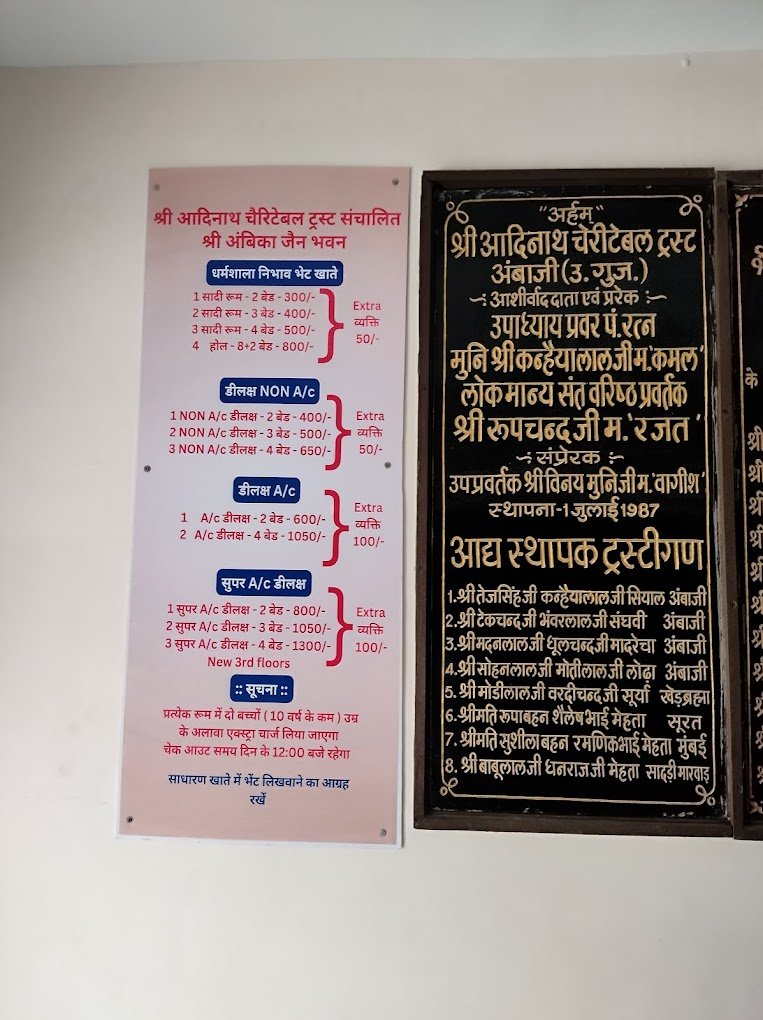 श्री आदिनाथ चैरिटेबल ट्रस्ट संचालित
श्री अंबिका जैन भवन
धर्मशाला निभाव भेट खाते
1 सादी रूम - 2 बेड - 300/-
2 सादी रूम - 3 बेड - 400/-
3 सादी रूम - 4 बेड - 500/-
4 होल - 8+2 बेड - 800/-
Extra
व्यक्ति
50/-
डीलक्ष NON A/c
1 NON A/c डीलक्ष - 2 बेड - 400/-
2 NON A/c डीलक्ष - 3 बेड - 500/-
3 NON A/c डीलक्ष - 4 बेड - 650/-
Extra
व्यक्ति
50/-
डीलक्ष A/c
1 A/c डीलक्ष - 2 बेड - 600/-
2 A/c डीलक्ष - 4 बेड - 1050/-
Extra
व्यक्ति
100/-
सुपर A/c डीलक्ष
1 सुपर A/c डीलक्ष - 2 बेड - 800/-
2 सुपर A/c डीलक्ष - 3 बेड - 1050/-
3 सुपर A/c डीलक्ष - 4 बेड - 1300/-
New 3rd floors
Extra
व्यक्ति
100/-
:: सूचना ::
प्रत्येक रूम में दो बच्चों ( 10 वर्ष के कम ) उम्र
के अलावा एक्स्ट्रा चार्ज लिया जाएगा
चेक आउट समय दिन के 12:00 बजे रहेगा
साधारण खाते में भेंट लिखवाने का आग्रह
रखें
"अर्हम्"
श्री आदिनाथ चेरीटेबल ट्रस्ट
अंबाजी (उ. गुज.)
-: आशीर्वाददाता एवं प्ररेक :-
उपाध्याय प्रवर पं. रत्न
मुनि श्री कन्हैयालालजी म.'कमल'
लोकमान्य संत वरिष्ठ प्रवर्तक
श्री रूपचन्दजी म.'रजत'
-: संप्रेरक :-
उपप्रवर्तक श्री विनय मुनिजी म.'वागीश'
स्थापना - 1 जुलाई 1987
आद्य स्थापक ट्रस्टीगण
1. श्री तेजसिंहजी कन्हैयालालजी सियाल अंबाजी
2. श्री टेकचन्दजी भंवरलालजी संघवी अंबाजी
3. श्री मदनलालजी धूलचन्दजी मादरेचा अंबाजी
4. श्री सोहनलालजी मोतीलालजी लोढ़ा अंबाजी
5. श्री मोडीलालजी वरदीचन्दजी सूर्या खेडब्रह्मा
6. श्रीमति रूपाबहन शैलेषभाई मेहता सूरत
7. श्रीमति सुशीलाबहन रमणिकभाई मेहता मुंबई
8. श्री बाबूलालजी धनराजजी मेहता सादड़ी मारवाड़